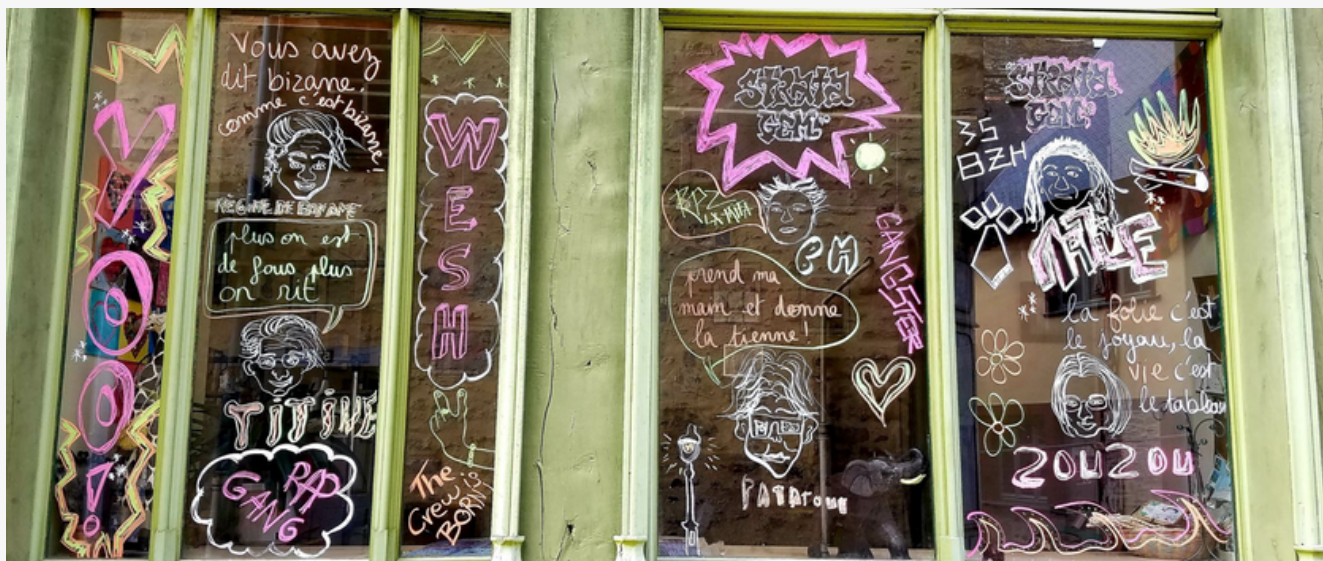 YOOO!
Vous avez
dit bizarre.
comme c'est bizarre!
RÉGIME DE BANANE
plus on est
de fous plus
on rit
TITINE
RAP
GANG
WESH
The
Crew is
BORN
STRATA
GEM
RPZ
CH
GANGSTER
prend ma
main et donne
la tienne!
PATATOUE
STRATA
GEM
35
BZH
la folie c'est
le joyau, la
vie c'est
le tableau
ZOUZOU